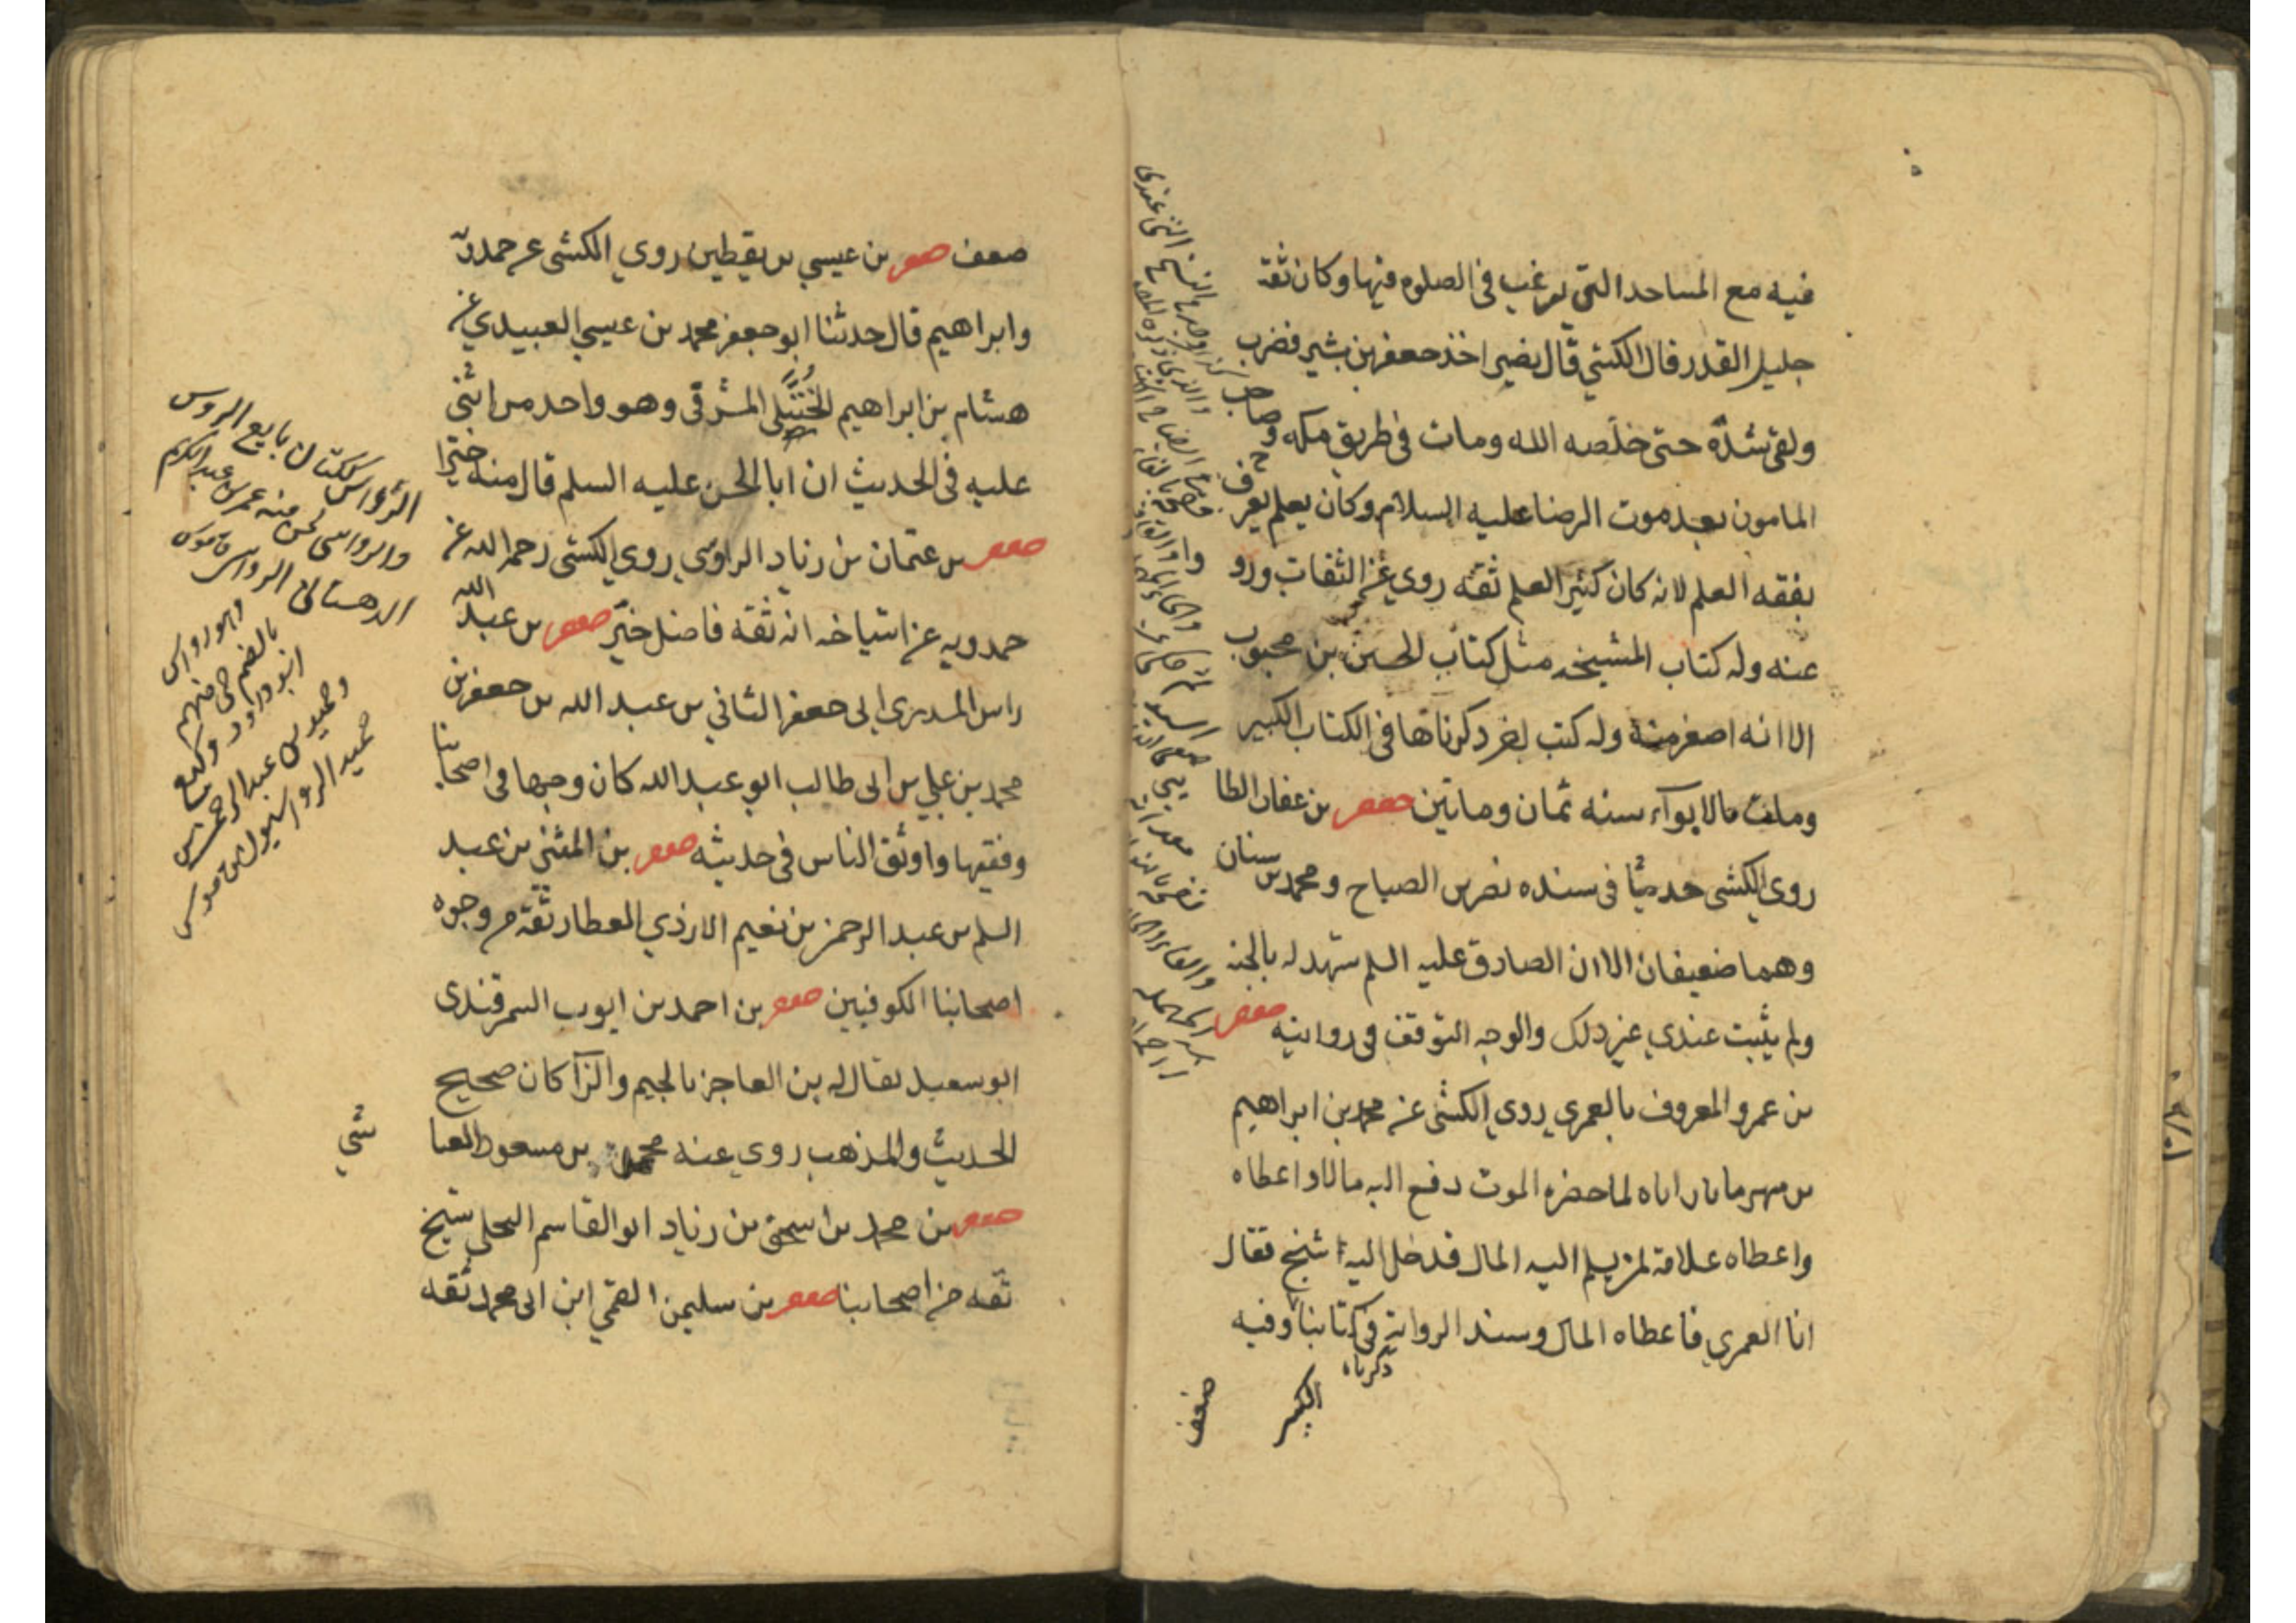 فيه مع المساجد التي يرغب في الصلوه فيها وكان ثقة
جليل القدر قال الكشي قال نصير اخذ جعفر بن بشير فضرب
ولقي شدّة حتى خلّصه الله ومات في طريق مكه وصاحب
المامون بعد موت الرضا عليه السلام وكان يعلم يعرف
بفقه العلم لانه كان كثير العلم ثقه روي عن الثقات ورو
عنه وله كتاب المشيخه مثل كتاب الحسن بن محبوب
الا انه اصغر منه وله كتب اخر ذكرناها في الكتاب الكبير
ومات بالابوآء سنه ثمان وماتين جعفر بن عفان الطا
روي الكشي حديثا في سنده نصر بن الصباح ومحمد بن سنان
وهما ضعيفان الا ان الصادق عليه السلم شهد له بالجنه
ولم يثبت عندي غير ذلك والوجه التوقف في روايته جعفر
بن عمرو المعروف بالعمري روي الكشي عن محمد بن ابراهيم
بن مهرمايار اباه لما حضره الموت دفع اليه مالا واعطاه
واعطاه علامة لمن يسلم اليه المال فدخل اليه شيخ فقال
انا العمري فاعطاه المال وسند الرواية في كتابنا وفيه
ذكرناه
الكبير
ضعف
ضعف جعفر بن عيسي بن يقطين روي الكشي عن حمدويه
وابراهيم قال حدثنا ابو جعفر محمد بن عيسي العبيدي عن
هشام بن ابراهيم الختّلي المشرقي وهو واحد من اثني
عليه في الحديث ان ابا الحسن عليه السلم قال منه خيرا
جعفر بن عثمان بن زياد الراوسي روي الكشي رحمه الله عن
حمدويه عن اشياخه انه ثقة فاضل خيّر جعفر بن عبد الله
راس المدري ابي جعفر الثاني بن عبد الله بن جعفر بن
محمد بن علي بن ابي طالب ابو عبد الله كان وجها في اصحابنا
وفقيها واوثق الناس في حديثه جعفر بن المثني بن عبد
السلم بن عبد الرحمن بن نعيم الازدي العطار ثقة من وجوه
اصحابنا الكوفيين جعفر بن احمد بن ايوب السمرقندى
ابو سعيد يقال له بن العاجز بالجيم والزآ كان صحيح
الحديث والمذهب روي عنه محمد بن مسعود العيا
شي
جعفر بن محمد بن اسحق بن زياد ابو القاسم البجلي شيخ
ثقه من اصحابنا جعفر بن سليمن القمي ابن ابي محمد ثقه
الرؤاس ككتان بايع الروس
والرواسي لحن منه عمر بن عبد الكريم
الدهستاني الرواسي قاموس
وهو رواس
بالضم حي منهم
ابو دواد وكيع
وحميد بن عبد الرحمن بن
حميد الرواسيون قاموس